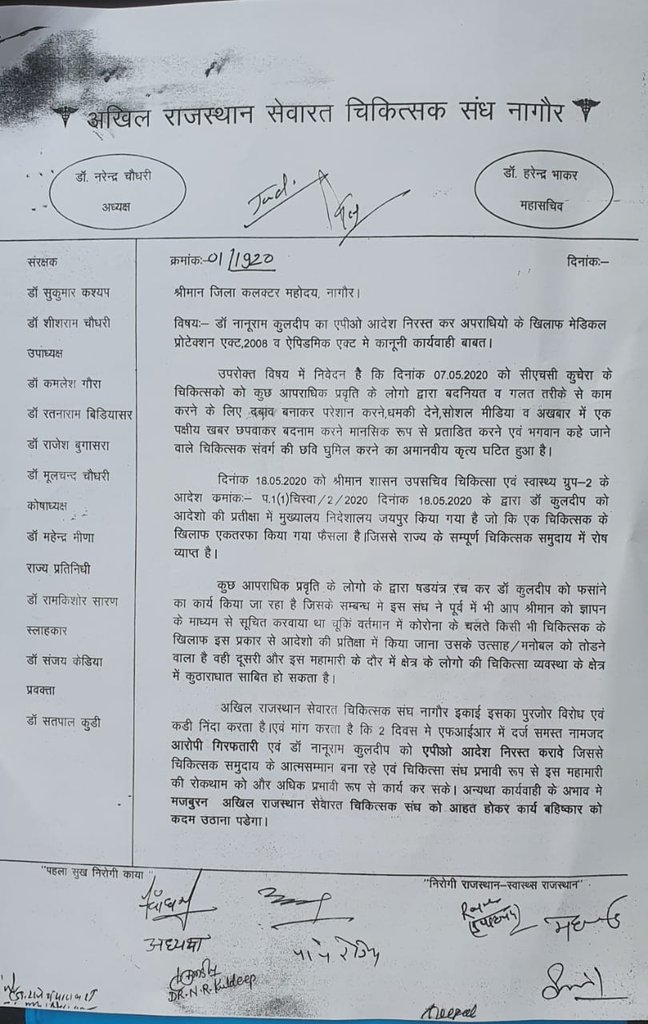 अखिल राजस्थान सेवारत चिकित्सक संघ नागौर
डॉ. नरेन्द्र चौधरी
अध्यक्ष
डॉ. हरेन्द्र भाकर
महासचिव
संरक्षक
डॉ सुकुमार कश्यप
डॉ शीशराम चौधरी
उपाध्यक्ष
डॉ कमलेश गौरा
डॉ रतनाराम बिडियासर
डॉ राजेश बुगासरा
डॉ मूलचन्द चौधरी
कोषाध्यक्ष
डॉ महेन्द्र मीणा
राज्य प्रतिनिधी
डॉ रामकिशोर सारण
स्लाहकार
डॉ संजय केडिया
प्रवक्ता
डॉ सतपाल कुडी
क्रमांकः-01/1920 दिनांकः–
श्रीमान जिला कलक्टर महोदय, नागौर।
विषयः– डॉ नानूराम कुलदीप का एपीओ आदेश निरस्त कर अपराधियो के खिलाफ मेडिकल
प्रोटेक्शन एक्ट,2008 व ऐपिडमिक एक्ट मे कानूनी कार्यवाही बाबत।
उपरोक्त विषय में निवेदन है कि दिनांक 07.05.2020 को सीएचसी कुचेरा के
चिकित्सको को कुछ आपराधिक प्रवृति के लोगो द्वारा बदनियत व गलत तरीके से काम
करने के लिए दबाव बनाकर परेशान करने,धमकी देने,सोशल मीडिया व अखबार में एक
पक्षीय खबर छपवाकर बदनाम करने मानसिक रूप से प्रताडित करने एवं भगवान कहे जाने
वाले चिकित्सक संवर्ग की छवि घुमिल करने का अमानवीय कृत्य घटित हुआ है।
दिनांक 18.05.2020 को श्रीमान शासन उपसचिव चिकित्सा एवं स्वास्थ्य ग्रुप–2 के
आदेश क्रमांकः– प.1(1)चिस्वा/2/2020 दिनांक 18.05.2020 के द्वारा डॉ कुलदीप को
आदेशो की प्रतीक्षा में मुख्यालय निदेशालय जयपुर किया गया है जो कि एक चिकित्सक के
खिलाफ एकतरफा किया गया फैसला है।जिससे राज्य के सम्पूर्ण चिकित्सक समुदाय में रोष
व्याप्त है।
कुछ आपराधिक प्रवृति के लोगो के द्वारा षडयंत्र रच कर डॉ कुलदीप को फसांने
का कार्य किया जा रहा है जिसके सम्बन्ध मे इस संध ने पूर्व में भी आप श्रीमान को ज्ञापन
के माध्यम से सूचित करवाया था चूकिं वर्तमान में कोरोना के चलते किसी भी चिकित्सक के
खिलाफ इस प्रकार से आदेशो की प्रतिक्षा में किया जाना उसके उत्साह/मनोबल को तोडने
वाला है वही दूसरी और इस महामारी के दौर में क्षेत्र के लोगो की चिकित्सा व्यवस्था के क्षेत्र
में कुठाराधात साबित हो सकता है।
अखिल राजस्थान सेवारत चिकित्सक संघ नागौर इकाई इसका पुरजोर विरोध एवं
कडी निंदा करता है।एवं मांग करता है कि 2 दिवस मे एफआईआर में दर्ज समस्त नामजद
आरोपी गिरफतारी एवं डॉ नानूराम कुलदीप को एपीओ आदेश निरस्त करावे जिससे
चिकित्सक समुदाय के आत्मसम्मान बना रहे एवं चिकित्सा संघ प्रभावी रूप से इस महामारी
की रोकथाम को और अधिक प्रभावी रूप से कार्य कर सके। अन्यथा कार्यवाही के अभाव मे
मजबुरन अखिल राजस्थान सेवारत चिकित्सक संध को आहत होकर कार्य बहिष्कार को
कदम उठाना पडेगा।
"पहला सुख निरोगी काया"
"निरोगी राजस्थान–स्वास्थ्स राजस्थान"
अध्यक्ष
DR.N.R.Kuldeep